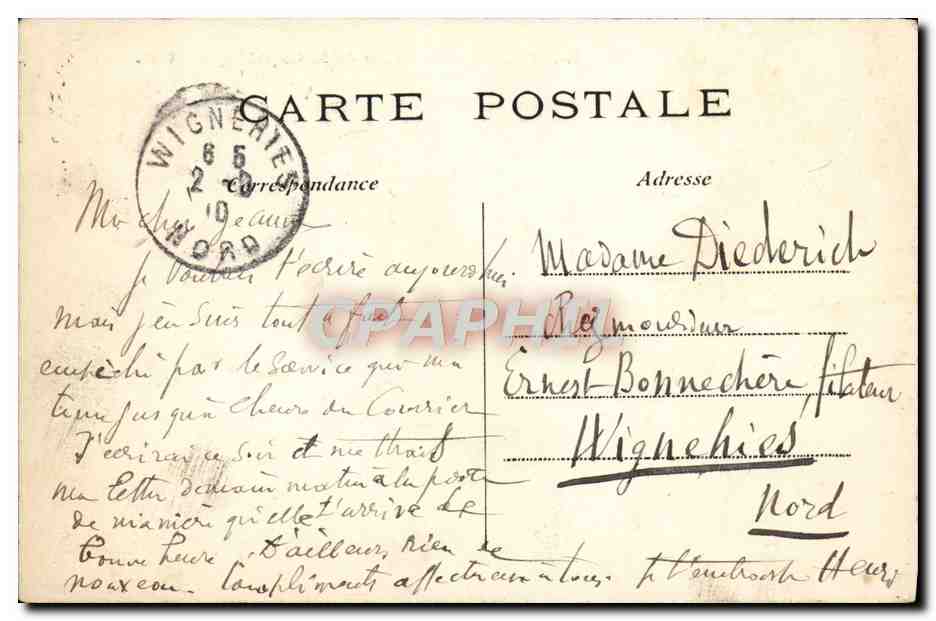 CARTE POSTALE
WIGNEHIES
6 5
2 -9
10
NORD
Correspondance
Adresse
Ma chère Jeanne
Je voulais t'écrire aujourd'hui
mais j'en suis tout à fait
empêché par le service qui m'a
tenu jusqu'à l'heure du Courrier
J'écrirai ce soir et mettrai
ma lettre demain matin à la poste
de manière qu'elle t'arrive de
bonne heure. D'ailleurs, rien de
nouveau. Compliments affectueux à tous. Je t'embrasse Henri
Madame Diederich
Chez monsieur
Ernest Bonnechère, filateur
Wignehies
Nord
CPAPHIL